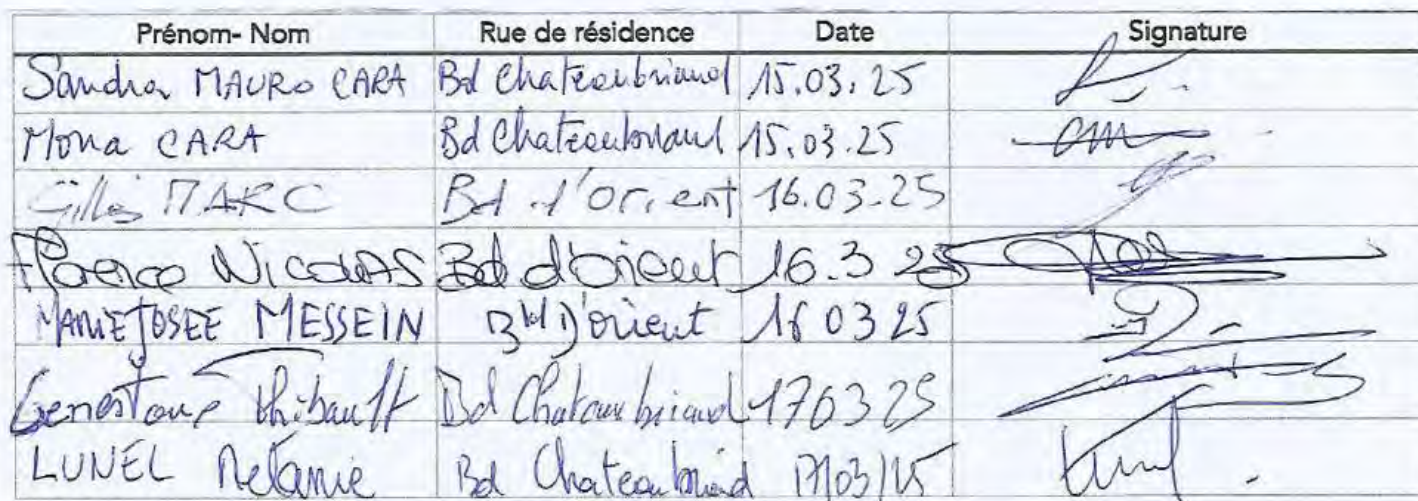 Prénom- Nom Rue de résidence Date Signature
Sandra MAURO CARA Bd Chateaubriand 15.03.25
Mona CARA Bd Chateaubriand 15.03.25
Gilles MARC Bd d'Orient 16.03.25
Florence NICOLAS Bd d'orient 16.3 25
MARIE JOSEE MESSEIN Bd D'orient 16 03 25
Thibault Bd Chateaubriand 170325
LUNEL Melanie Bd Chateaubriand 17/03/25